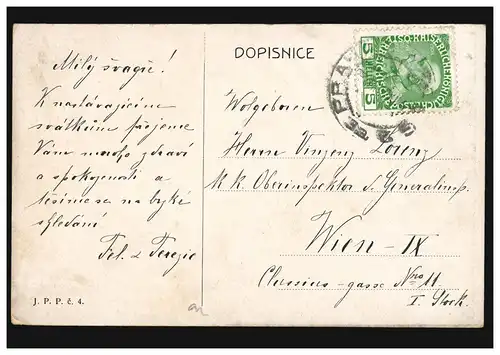 DOPISNICE
Milý švagře!
K nastávajícím
svátkům přejeme
Vám mnoho zdraví
a spokojenosti a
těšíme se na brzké
shledání
Fel. a Terezie
J. P. P. č. 4.
5 5
Wolgeboren
Herrn Vinzenz Lorenz
k. k. Oberinspektor d. Generalinsp.
Wien - IX
Clusius-gasse Nro 11
I. Stock.